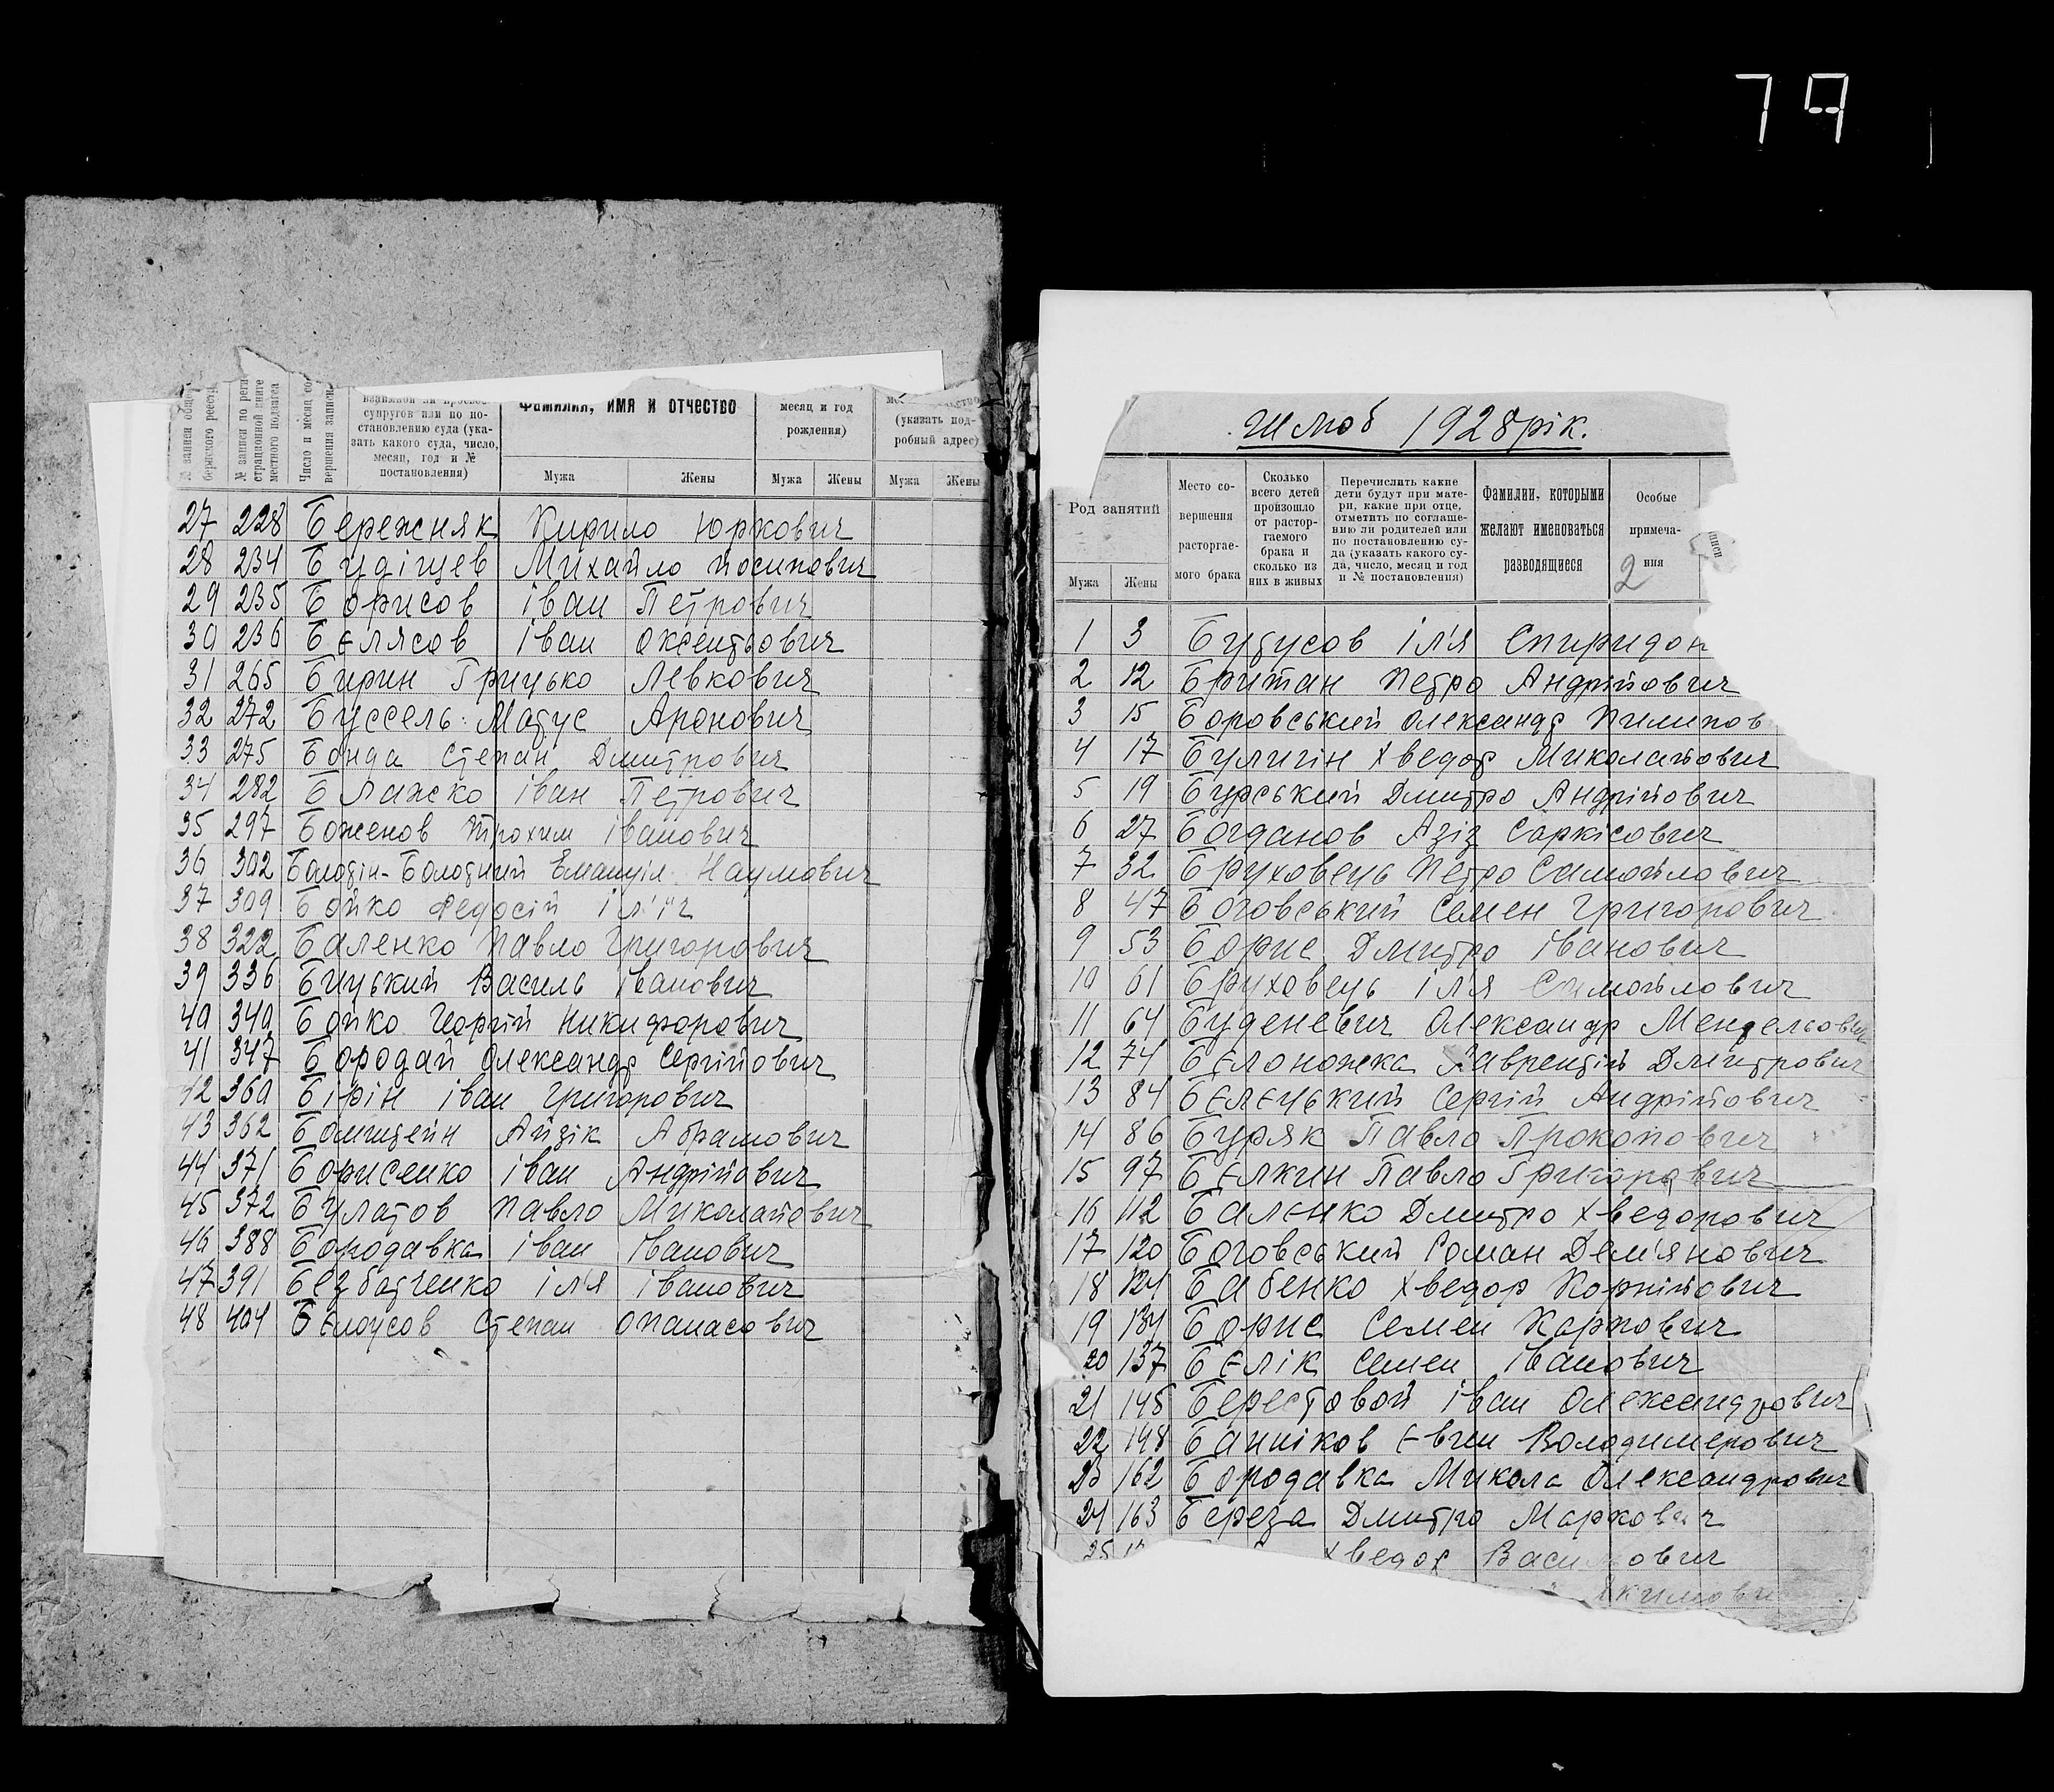 79
№ записи обще
бернского реестр
№ записи по реги
страционной книге
местного подзагса
Число и месяц со
вершения записи
супругов или по по-
становлению суда (ука-
зать какого суда, число,
месяц, год и №
постановления)
Фамилия, имя и отчество
месяц и год
рождения)
(указать под-
робный адрес)
Мужа Жены Мужа Жены Мужа Жены
27 228 Бережняк Кирило Юркович
28 234 Михайло Йосипович
29 235 Борисов Іван Петрович
30 236 Бєлясов Іван Оксентьович
31 265 Бирин Грицько Левкович
32 272 Буссель Матус Аронович
33 275 Бонда Степан Дмитрович
34 282 Блажко Іван Петрович
35 297 Боженов Трохим Іванович
36 302 Болотін-Болотний Емануіл Наумович
37 309 Бойко Федосій Ілліч
38 322 Баленко Павло Григорович
39 336 Бицький Василь Іванович
40 340 Бойко Георгій Никифорович
41 347 Бородай Олександр Сергійович
42 360 Бірін Іван Григорович
43 362 Айзік Абрамович
44 371 Борисенко Іван Андрійович
45 372 Булатов Павло Миколайович
46 388 Бородавка Іван Іванович
47 391 Безбатченко Ілля Іванович
48 404 Бєлоусов Степан Опанасович
Шлюб 1928 рік.
Род занятий
Мужа Жены
Место со-
вершения
расторгае-
мого брака
Сколько
всего детей
произошло
от растор-
гаемого
брака и
сколько из
них в живых
Перечислить какие
дети будут при мате-
ри, какие при отце,
отметить по соглаше-
нию ли родителей или
по постановлению су-
да (указать какого су-
да, число, месяц и год
и № постановления)
Фамилии, которыми
желают именоваться
разводящиеся
Особые
примеча-
ния
2
1 3 Бутусов Ілля Спиридон
2 12 Британ Петро Андрійович
3 15 Боровський Олександр Пилипов
4 17 Булигін Хведор Миколайович
5 19 Бурський Дмитро Андрійович
6 27 Богданов Азіз Саркісович
7 32 Бруховець Петро Самойлович
8 47 Боговський Семен Григорович
9 53 Борис Дмитро Іванович
10 61 Бруховець Ілля Самойлович
11 64 Буденевич Олександр Мендельович
12 74 Бєлоножка Лаврентій Дмитрович
13 84 Бєлєцький Сергій Андрійович
14 86 Буряк Павло Прокопович
15 97 Бєлкин Павло Григорович
16 112 Балєнко Дмитро Хведорович
17 120 Боговський Роман Дем'янович
18 124 Бабенко Хведор Корнійович
19 134 Борис Семен Карпович
20 137 Бєлік Семен Іванович
21 145 Берестовой Іван Олександрович
22 148 Банніков Євген Володимерович
23 162 Бородавка Микола Олександрович
24 163 Береза Дмитро Маркович
25 Хведор Васильович
Якимови